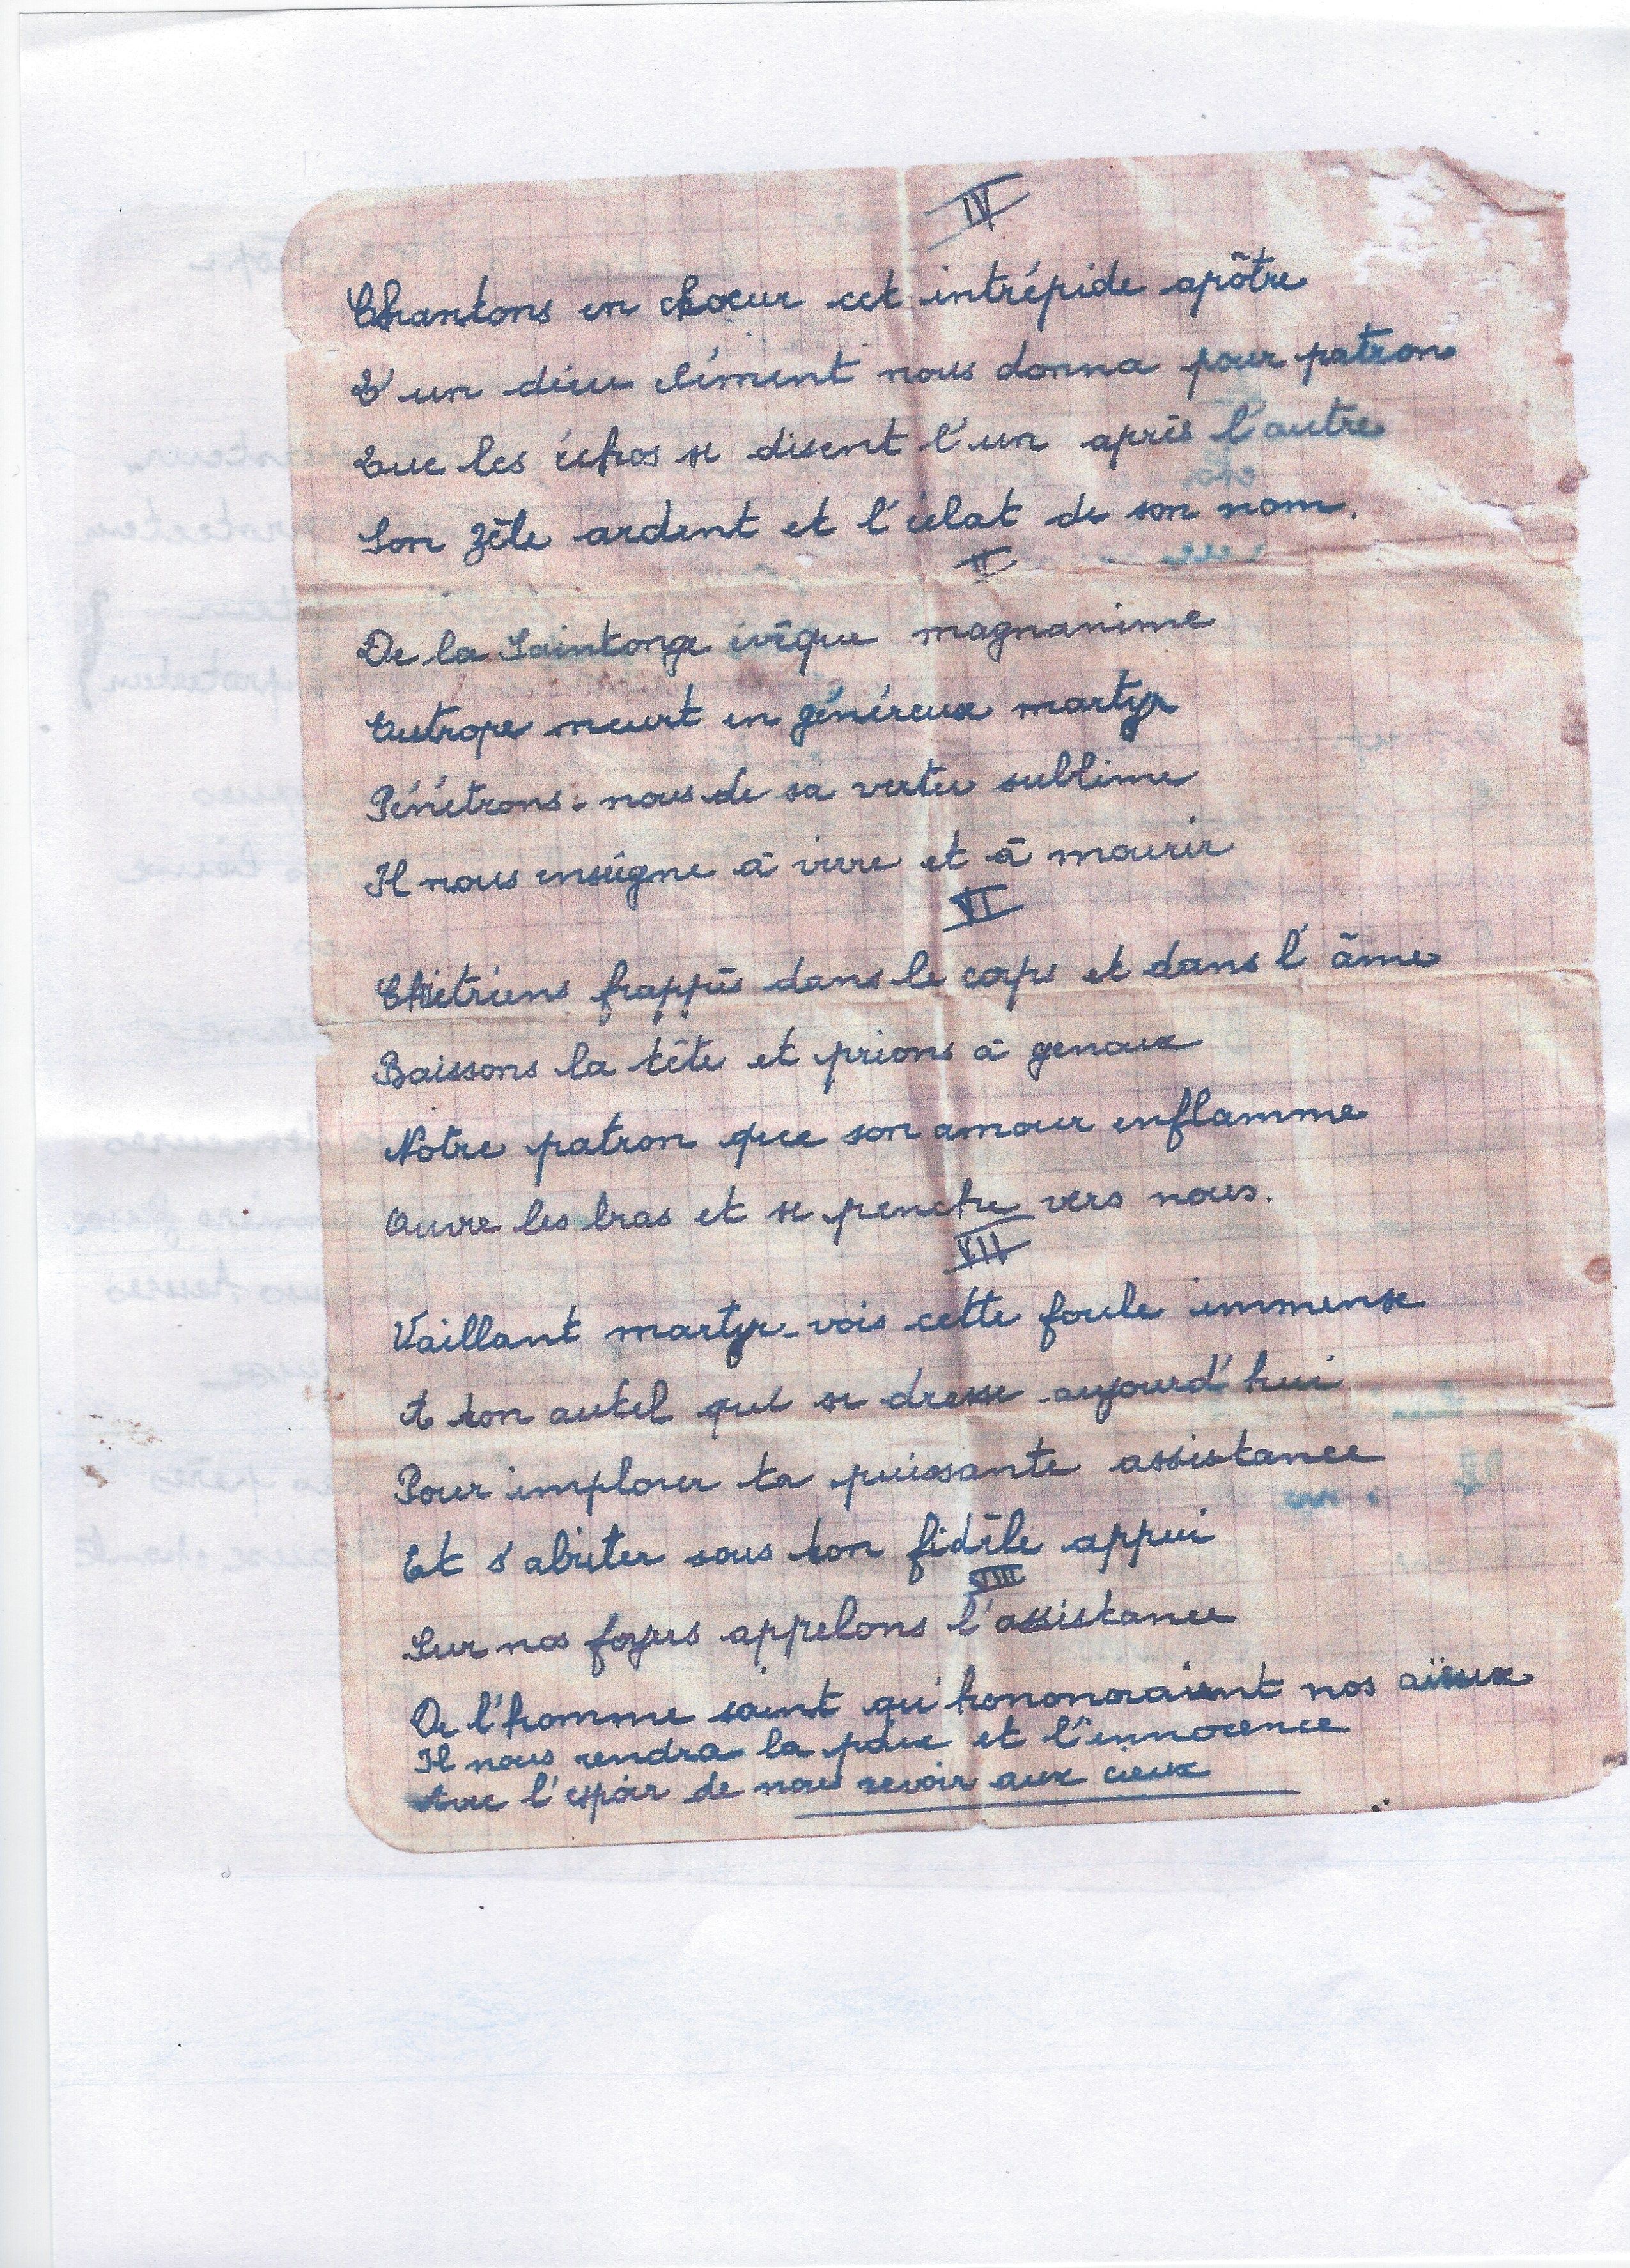 IV
Chantons en choeur cet intrépide apôtre
Qu'un dieu clément nous donna pour patron
Que les échos se disent l'un après l'autre
Son zèle ardent et l'éclat de son nom.
V
De la Saintonge évêque magnanime
Eutrope meurt en généreux martyr
Pénétrons-nous de sa vertu sublime
Il nous enseigne à vivre et à mourir
VI
Chrétiens frappés dans le corps et dans l'âme
Baissons la tête et prions à genoux
Notre patron que son amour enflamme
Ouvre les bras et se penche vers nous.
VII
Vaillant martyr vois cette foule immense
A ton autel qui se dresse aujourd'hui
Pour implorer ta puissante assistance
Et s'abriter sous ton fidèle appui
VIII
Sur nos foyers appelons l'assistance
De l'homme saint qu'hononoraient nos aïeux
Il nous rendra la paix et l'innocence
Avec l'espoir de nous revoir aux cieux